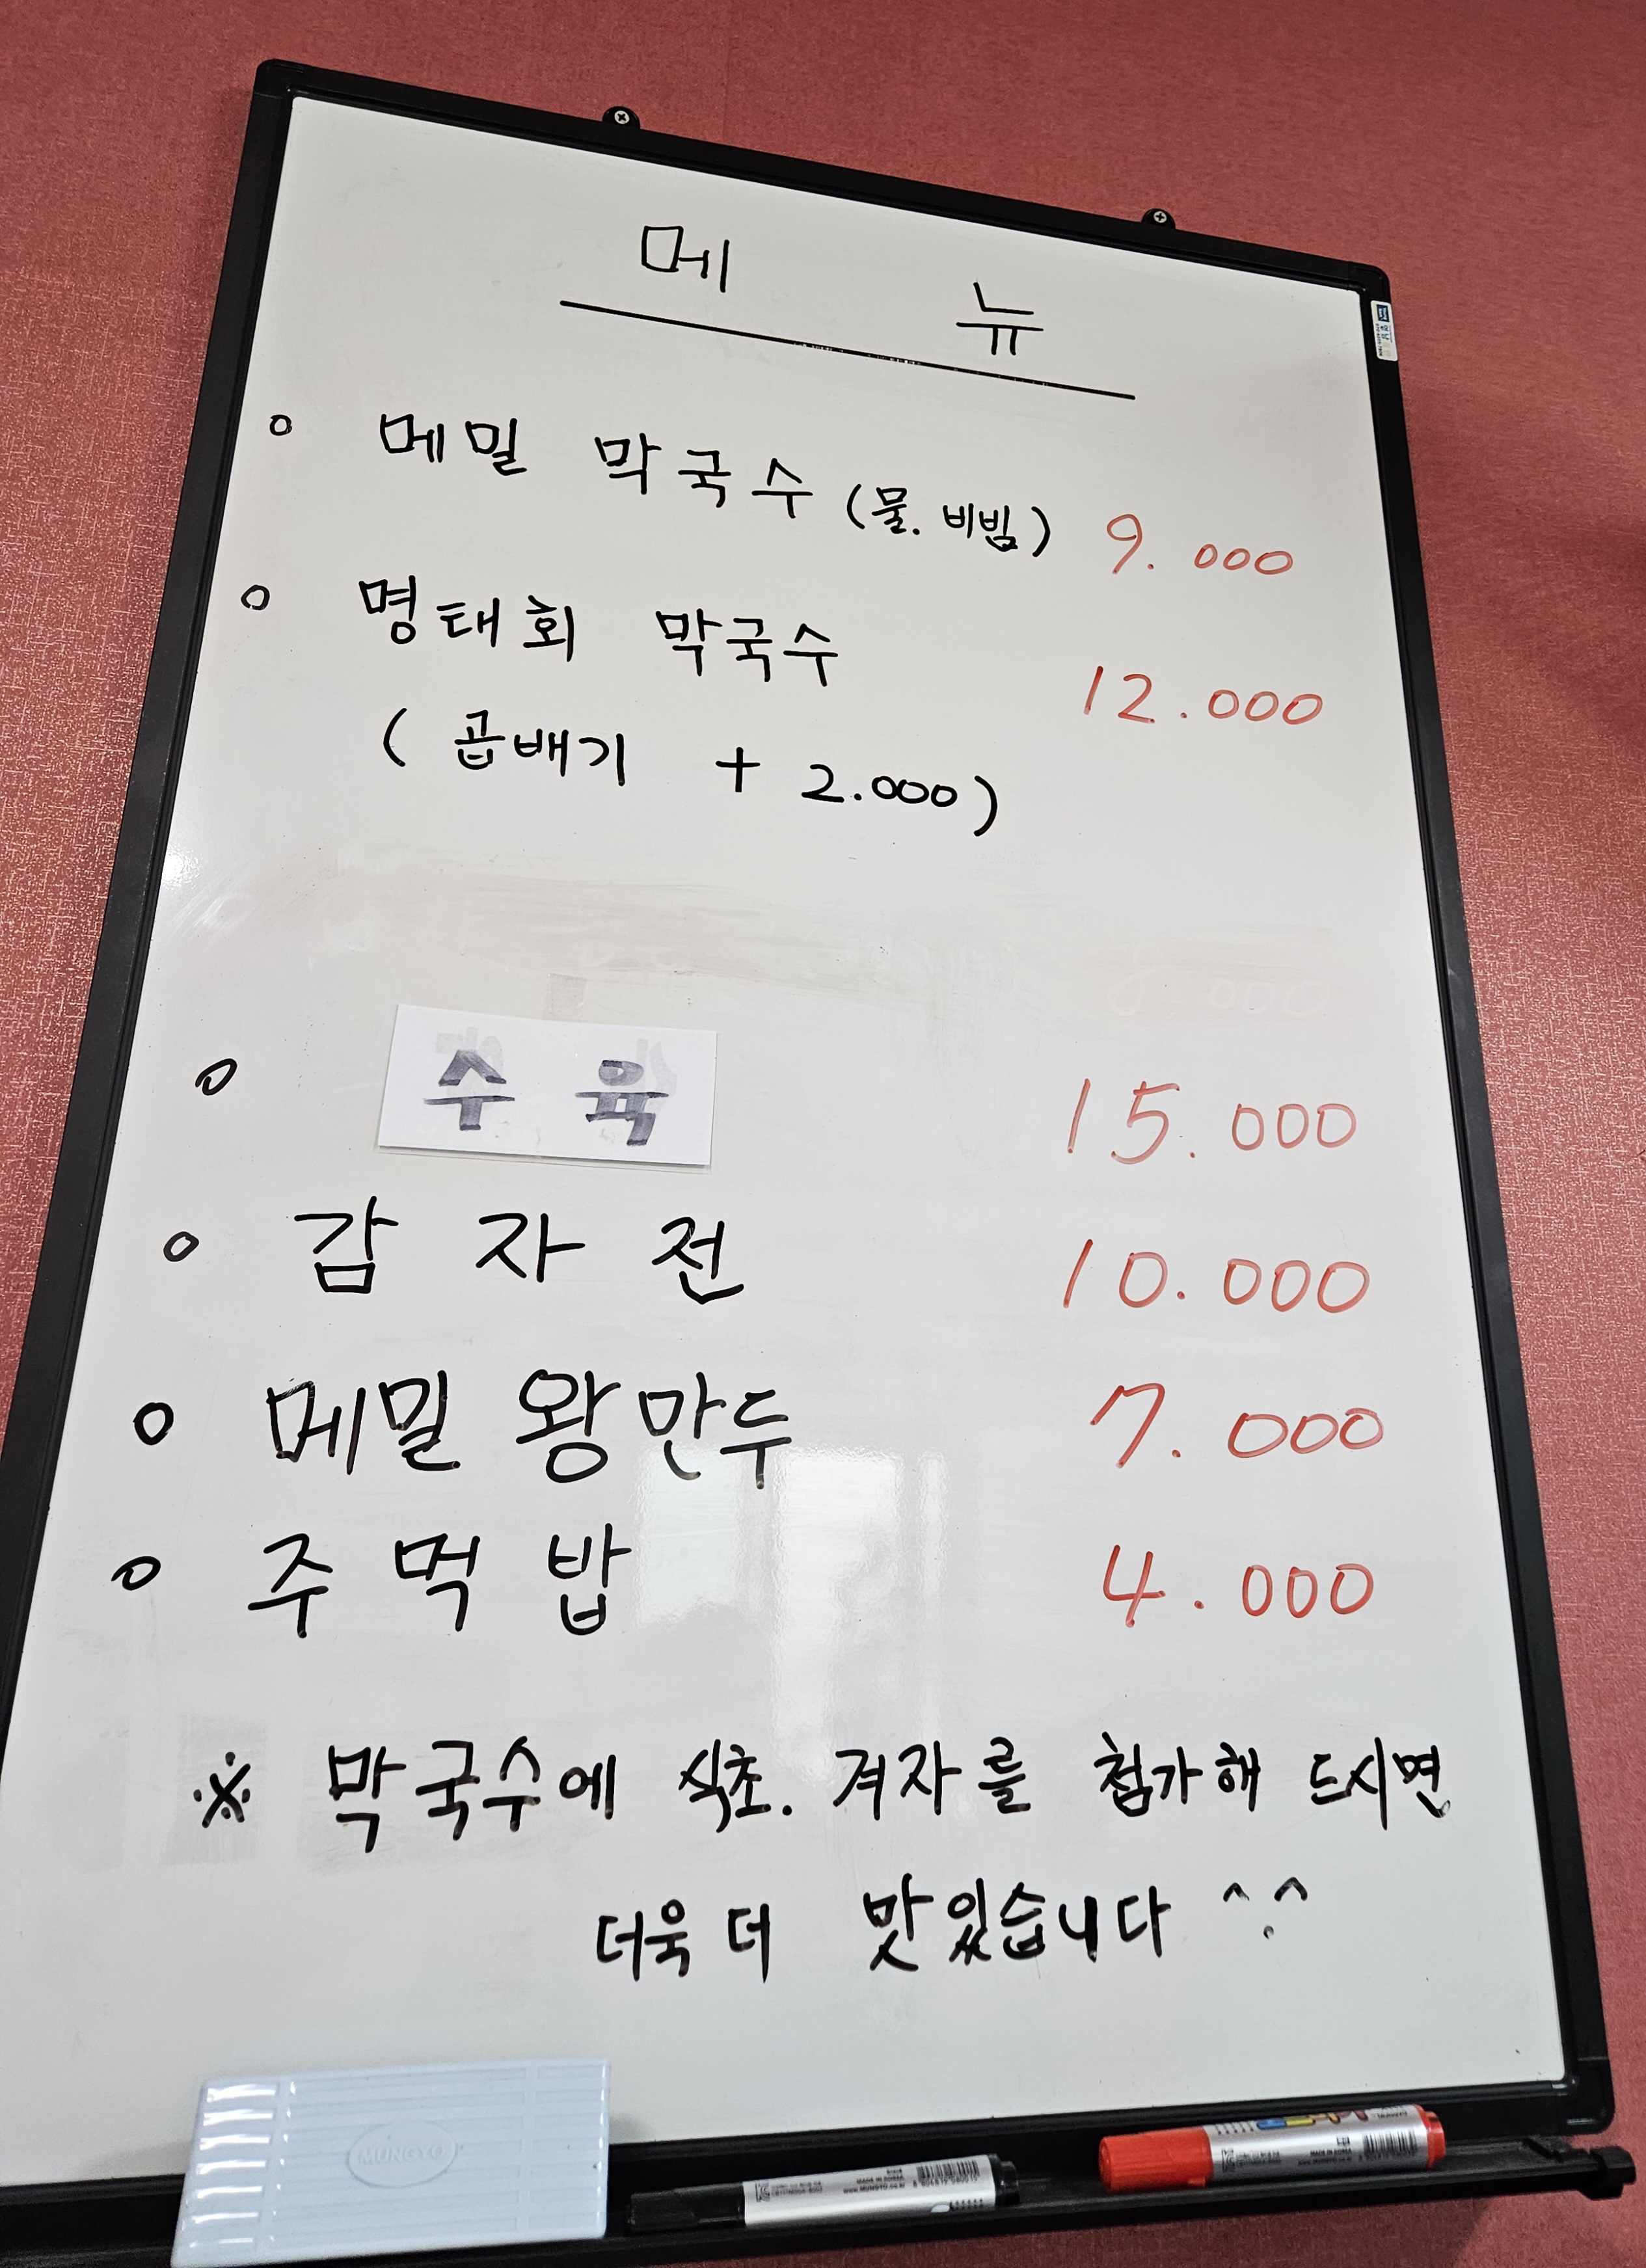 메 뉴
○ 메밀 막국수 (물. 비빔) 9.000
○ 명태회 막국수 12.000
( 곱배기 + 2.000)
○ 수육 15.000
○ 감자전 10.000
○ 메밀 왕만두 7.000
○ 주먹밥 4.000
※ 막국수에 식초. 겨자를 첨가해 드시면
더욱 더 맛있습니다 ^.^
MUNGYO